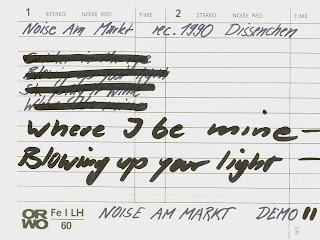 1 STEREO: NOISE RED: TIME 2 STEREO: NOISE RED: TIME
Noise Am Markt rec. 1990 Dissenchen
Blowing up your light
where I be mine —
Blowing up your light —
ORWO Fe I LH 60 NOISE AM MARKT DEMO II